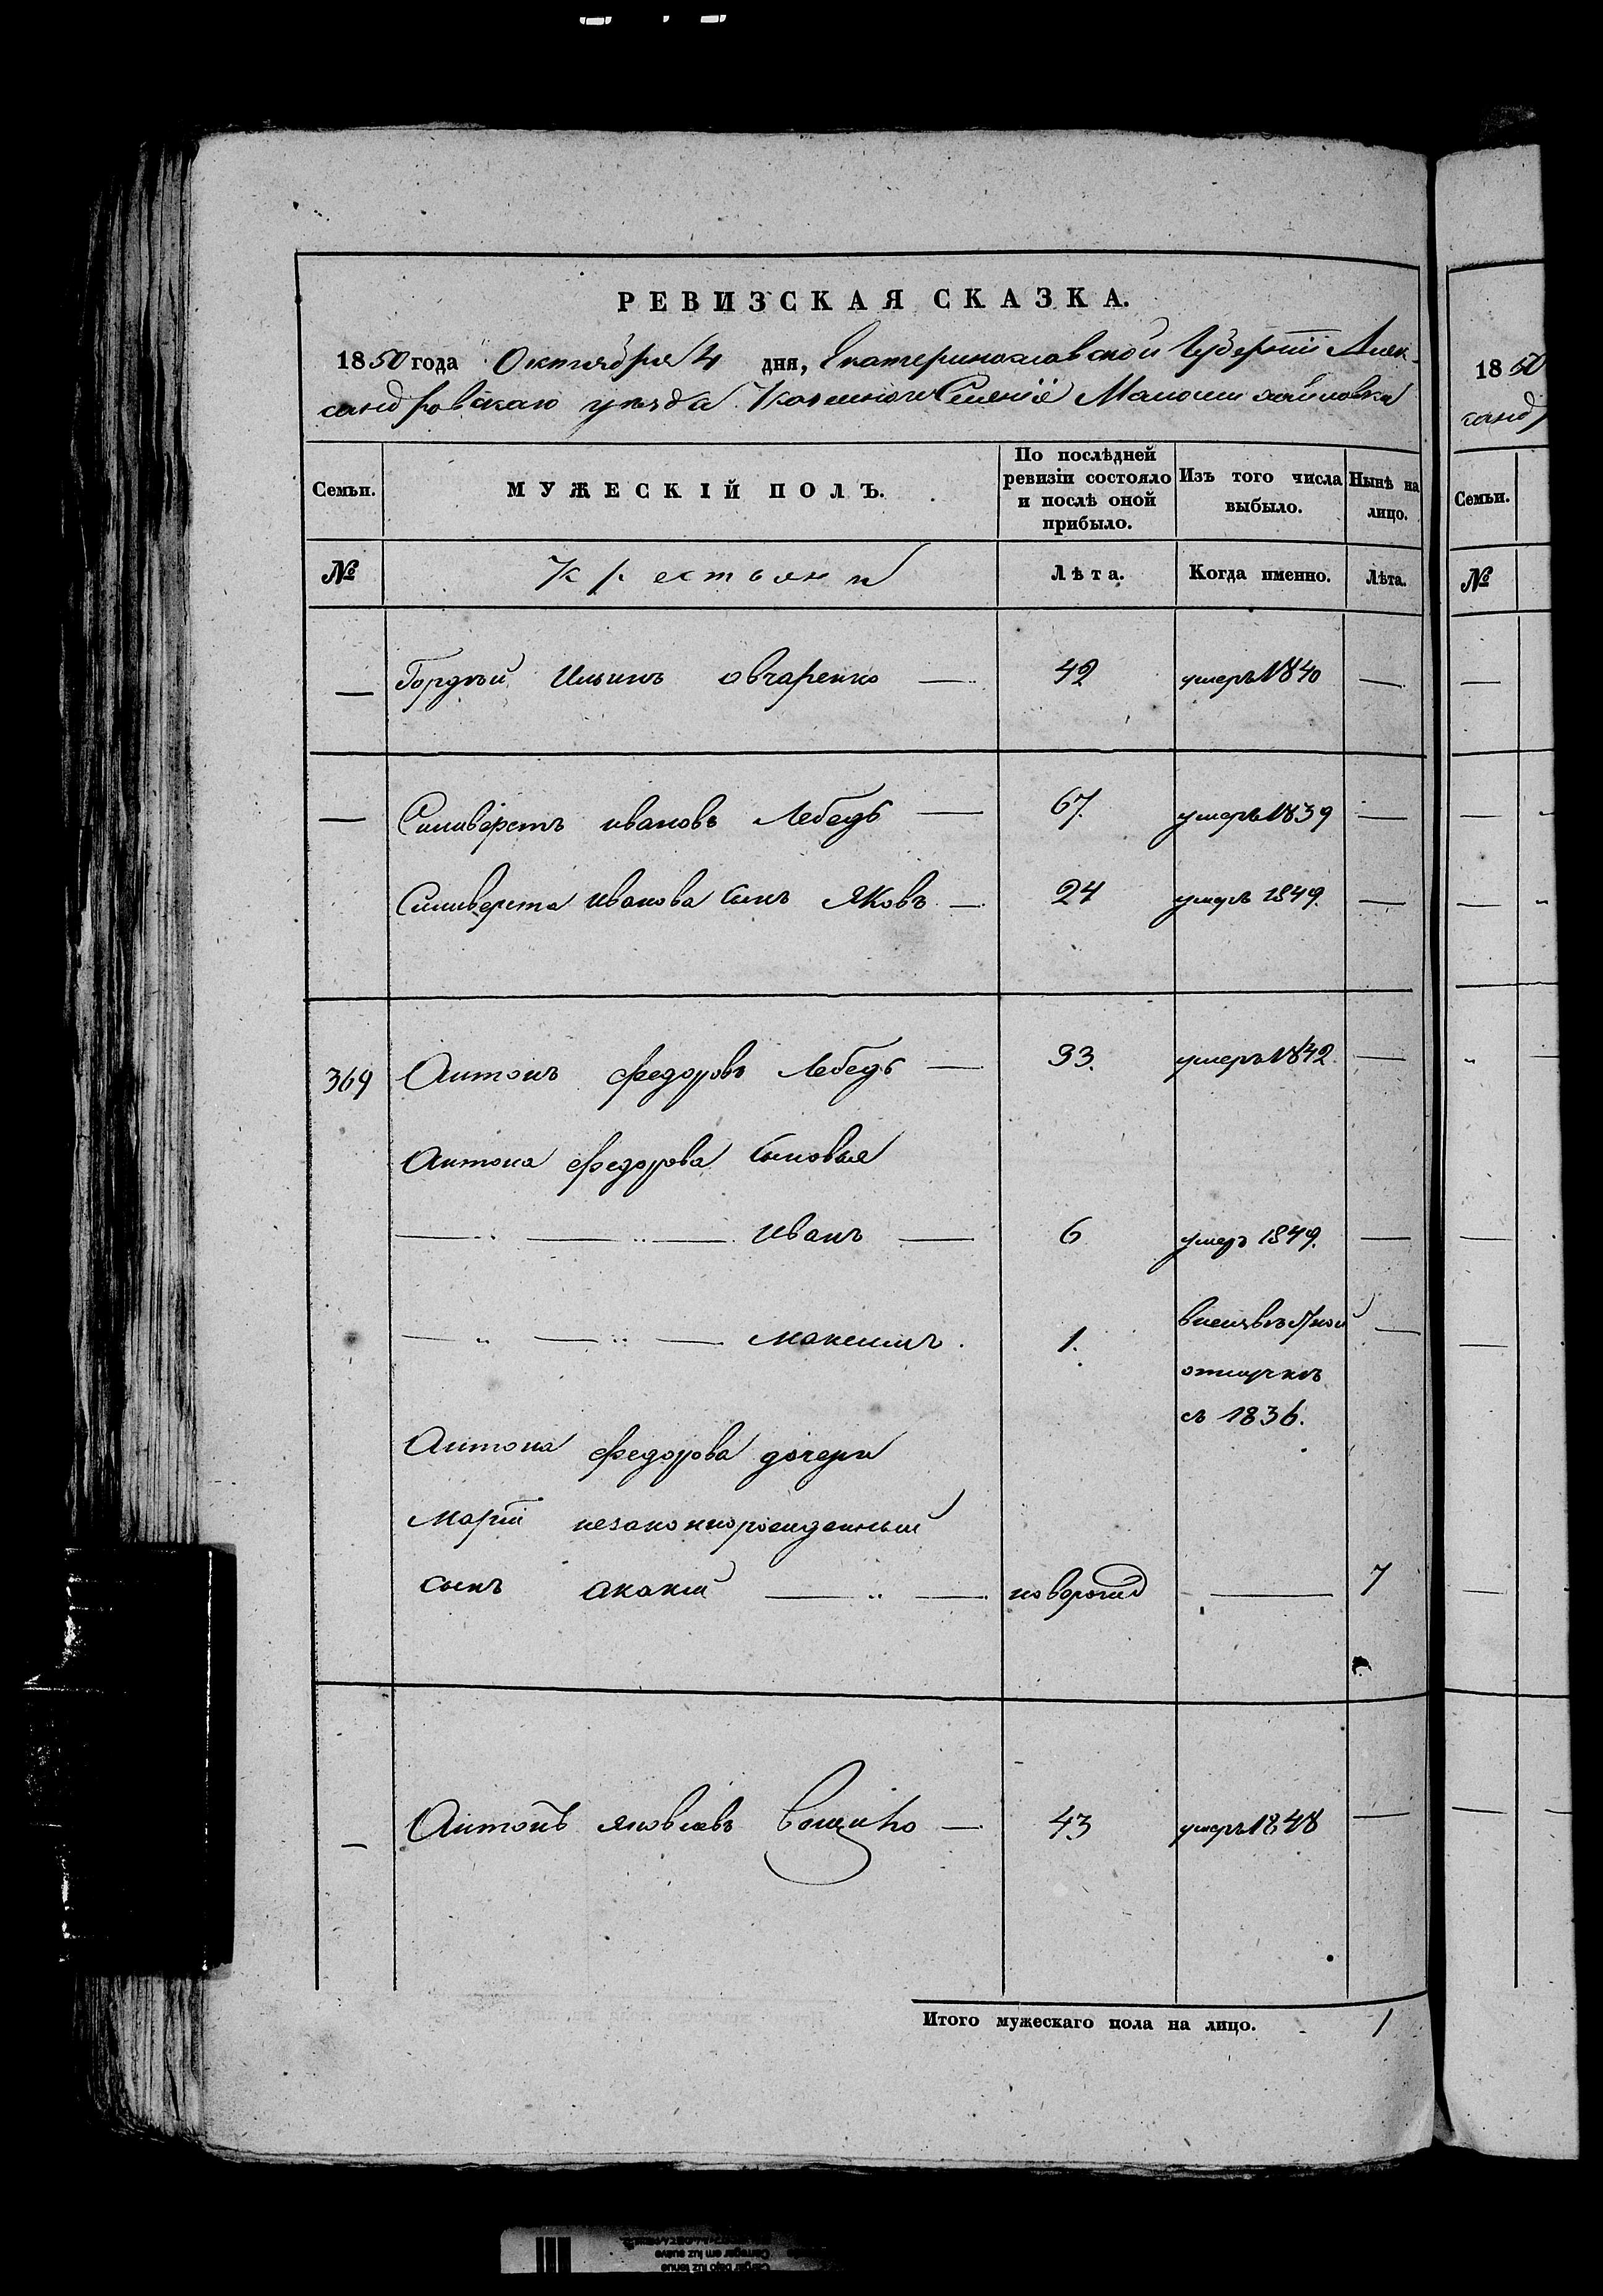 РЕВИЗСКАЯ СКАЗКА.
1850 года Октября 4 дня, Екатеринославской Губернiи Алек-
сандровскаго уѣзда Казенного Селенiя Маломихайловки
Семьи. МУЖЕСКIЙ ПОЛЪ. По послѣдней ревизiи состояло и послѣ оной прибыло. Изъ того числа выбыло. Нынѣ на лицо.
№ Крестьяни Лѣта. Когда именно. Лѣта.
— Гордѣй Ильинъ овчаренко — 42 умеръ 1840 —
— Силиверстъ ивановъ Лебедь — 67. умеръ 1839 —
Силиверста иванова сынъ Яковъ — 24 умеръ 1849. —
369 Антонъ федоровъ Лебедь — 33. умеръ 1842. —
Антона федорова сыновья
— " — " — иванъ — 6 умеръ 1849. —
— " — " — максимъ. 1. —
отлучкѣ
съ 1836.
Антона федорова дочери
марiи незаконнорожденный
сынъ акакiй — " — новорожд — 7
— Антонъ яковлевъ — 43 умеръ 1848 —
Итого мужескаго пола на лицо. 1
1850
санд
Семьи.
№